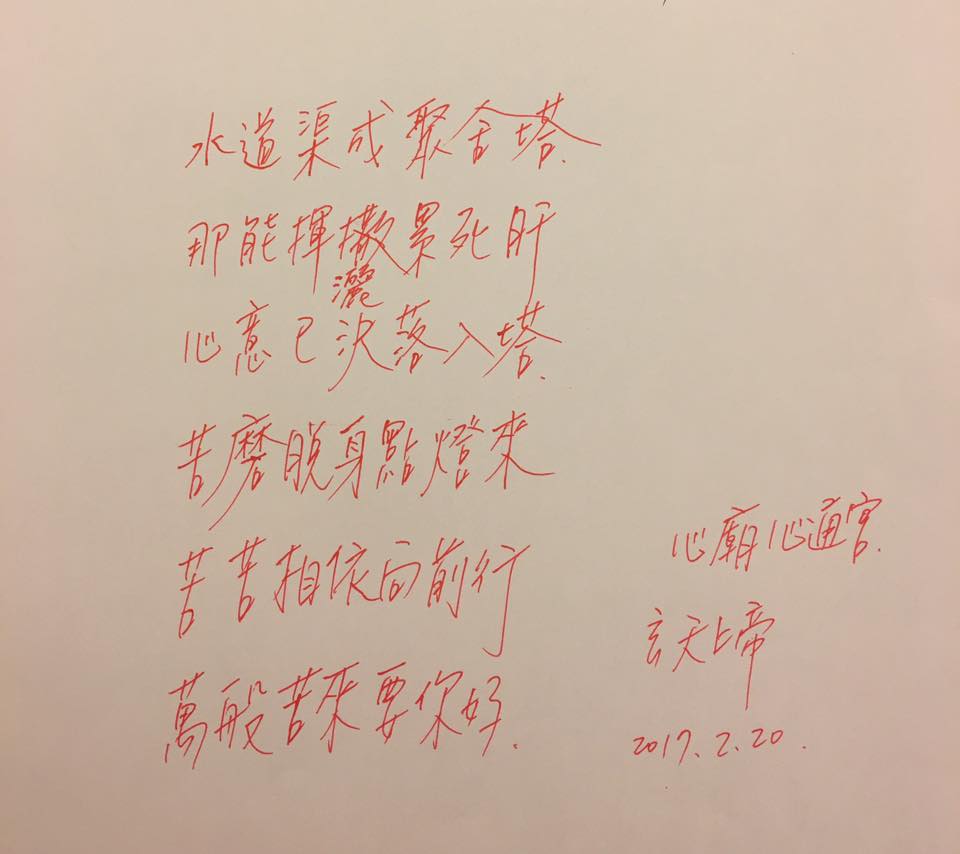 水道渠成聚舍塔.
那能揮撒累死肝
灑
心意已決落入塔.
苦磨脱身點燈來
苦苦相依向前行
萬般苦來要你好.
心廟心通宮.
玄天上帝
2017.2.20.